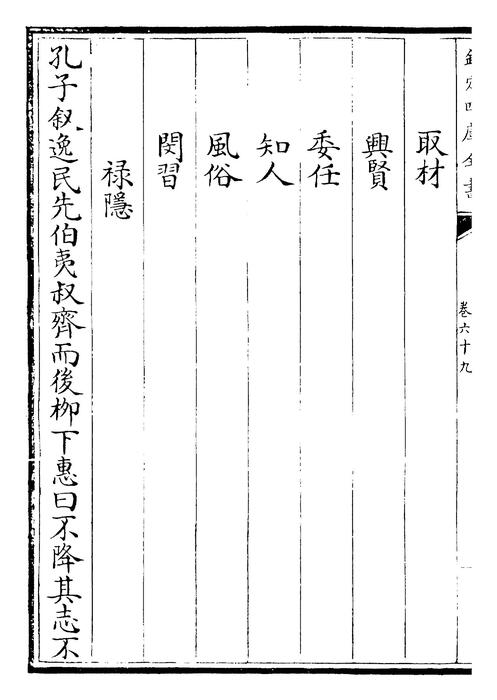 欽定四庫全書
卷六十九
取材
興賢
委任
知人
風俗
閔習
禄隱
孔子叙逸民先伯夷叔齊而後柳下惠曰不降其志不